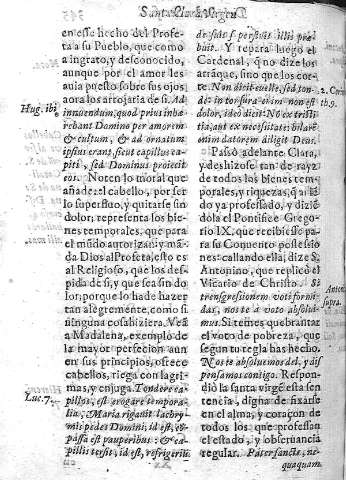 Santa Clara Virgen
en esse hecho del Profe-
ta a su Pueblo, que como
a ingrato, y desconocido,
aunque por el amor les
auia puesto sobre sus ojos
aora los arrojaria de si. Ad
Hug. ibi
innuendum, quod prius inha-
rebant Domino per amorem
& cultum, & ad ornatum
ipsius erant sicut capillus ca-
piti, sed Dominus proiecit
eos. Noten lo moral que
añade: el cabello, por ser
lo superfluo, y quitarse sin
dolor; representa los bie-
nes temporales, que para
el mūdo autoriza: y mā-
da Dios al Profeta, esto es
al Religioso, que los des-
pida de si, y que sea sin do
lor; porque lo ha de hazer
tan alegremente, como si
ninguna cosa hiziera. Veā
a Madalena, exemplo de
la mayor perfecion aun
en sus principios, ofrece
cabellos, riega con lagri-
mas, y enjuga. Tondere ca-
Luc. 7.
pillos, est erogare tempora-
lia, Maria rigauit lachry-
mis pedes Domini, id est,
passa est pauperibus: & ca-
pillis tersit, id est, refrigerij
buit. Y repara luego el
Cardenal, q̄ no dize los
atràque, sino que los cor-
te. Non dicit euelle, sed ton-
de: in tonsura enim non est
2. Corin
th. 9.
dolor, ideò dicit: No ex tristi-
tia, aut ex necessitate: hilarē
enim datorem diligit Deus.
Passò adelante Clara,
y deshizose tan de rayz
de todos los bienes tem-
porales, y riquezas, q̄ aiē
do ya professado, y diziē
dola el Pontifice Grego-
rio IX. que recibiesse pa-
ra su Conuento possessio
nes: callando ella; dize S.
Antonino, que replicò el
Vicario de Christo. Si
Anton.
supra.
transgressionem voti formi-
das, nos te à voto absolui-
mus. Si temes quebrantar
el voto de pobreza, que
segun tu regla has hecho.
Nos te absoluemos del, y dis-
pensamos contigo. Respon-
diò la santa virgē esta sen
tencia, digna de fixarse
en el alma, y coraçon de
todos los que professan
el estado, y obseruancia
regular. Pater sancte, ne-
quaquam.